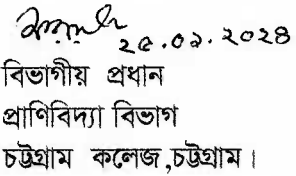 ২৫.০৯.২০২৪
বিভাগীয় প্রধান
প্রাণিবিদ্যা বিভাগ
চট্টগ্রাম কলেজ,চট্টগ্রাম।